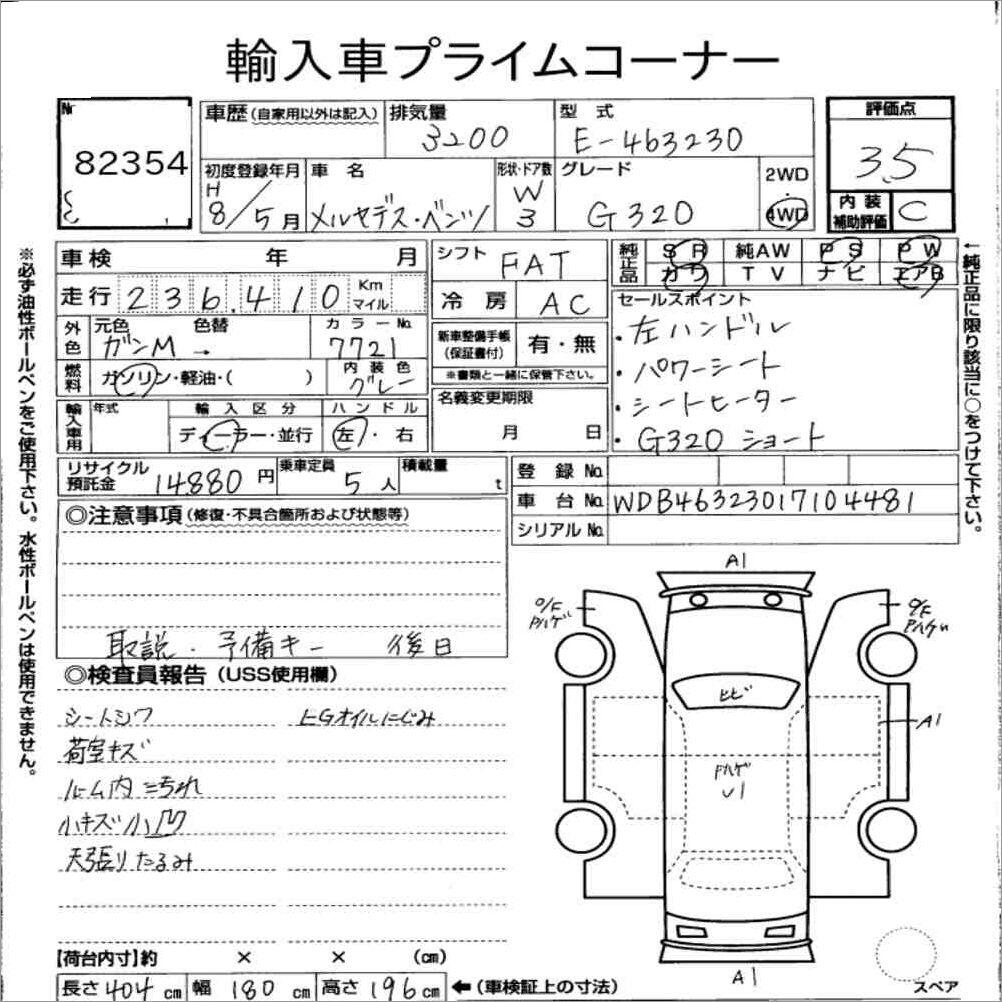 輸入車プライムコーナー
Nr
82354
車歴(自家用以外は記入) 排気量 3200 型式 E-463230 評価点 3.5
初度登録年月 H 8/5月 車名 メルセデス・ベンツ 形状・ドア数 W 3 グレード G320 2WD・4WD 内装補助評価 C
車検 年 月
走行 236,410 Km マイル
外色 元色 ガンM → 色替 カラーNo. 7721
燃料 ガソリン・軽油・( ) 内装色 グレー
輸入車用 年式 輸入区分 ディーラー・並行 ハンドル 左・右
シフト FAT
冷房 AC
新車整備手帳(保証書付) 有・無
※書類と一緒に保管下さい。
名義変更期限
月 日
純正品 SR 純AW PS PW
カワ TV ナビ エアB
セールスポイント
・左ハンドル
・パワーシート
・シートヒーター
・G320 ショート
リサイクル預託金 14880円 乗車定員 5人 積載量 t
登録No.
車台No. WDB46323017104481
シリアルNo.
◎注意事項(修復・不具合箇所および状態等)
取説・予備キー 後日
◎検査員報告(USS使用欄)
シートシワ EGオイルにじみ
荷室キズ
ルーム内ニ汚れ
小キズ小凹
天張りたるみ
【荷台内寸】約 × × (cm)
長さ 404 cm 幅 180 cm 高さ 196 cm ←(車検証上の寸法)
※必ず油性ボールペンをご使用下さい。水性ボールペンは使用できません。
←純正品に限り該当に○をつけて下さい。
A1
O/F
Pハゲ
O/F
Pハゲ
ヒビ
A1
Fハゲ
U1
A1
スペア